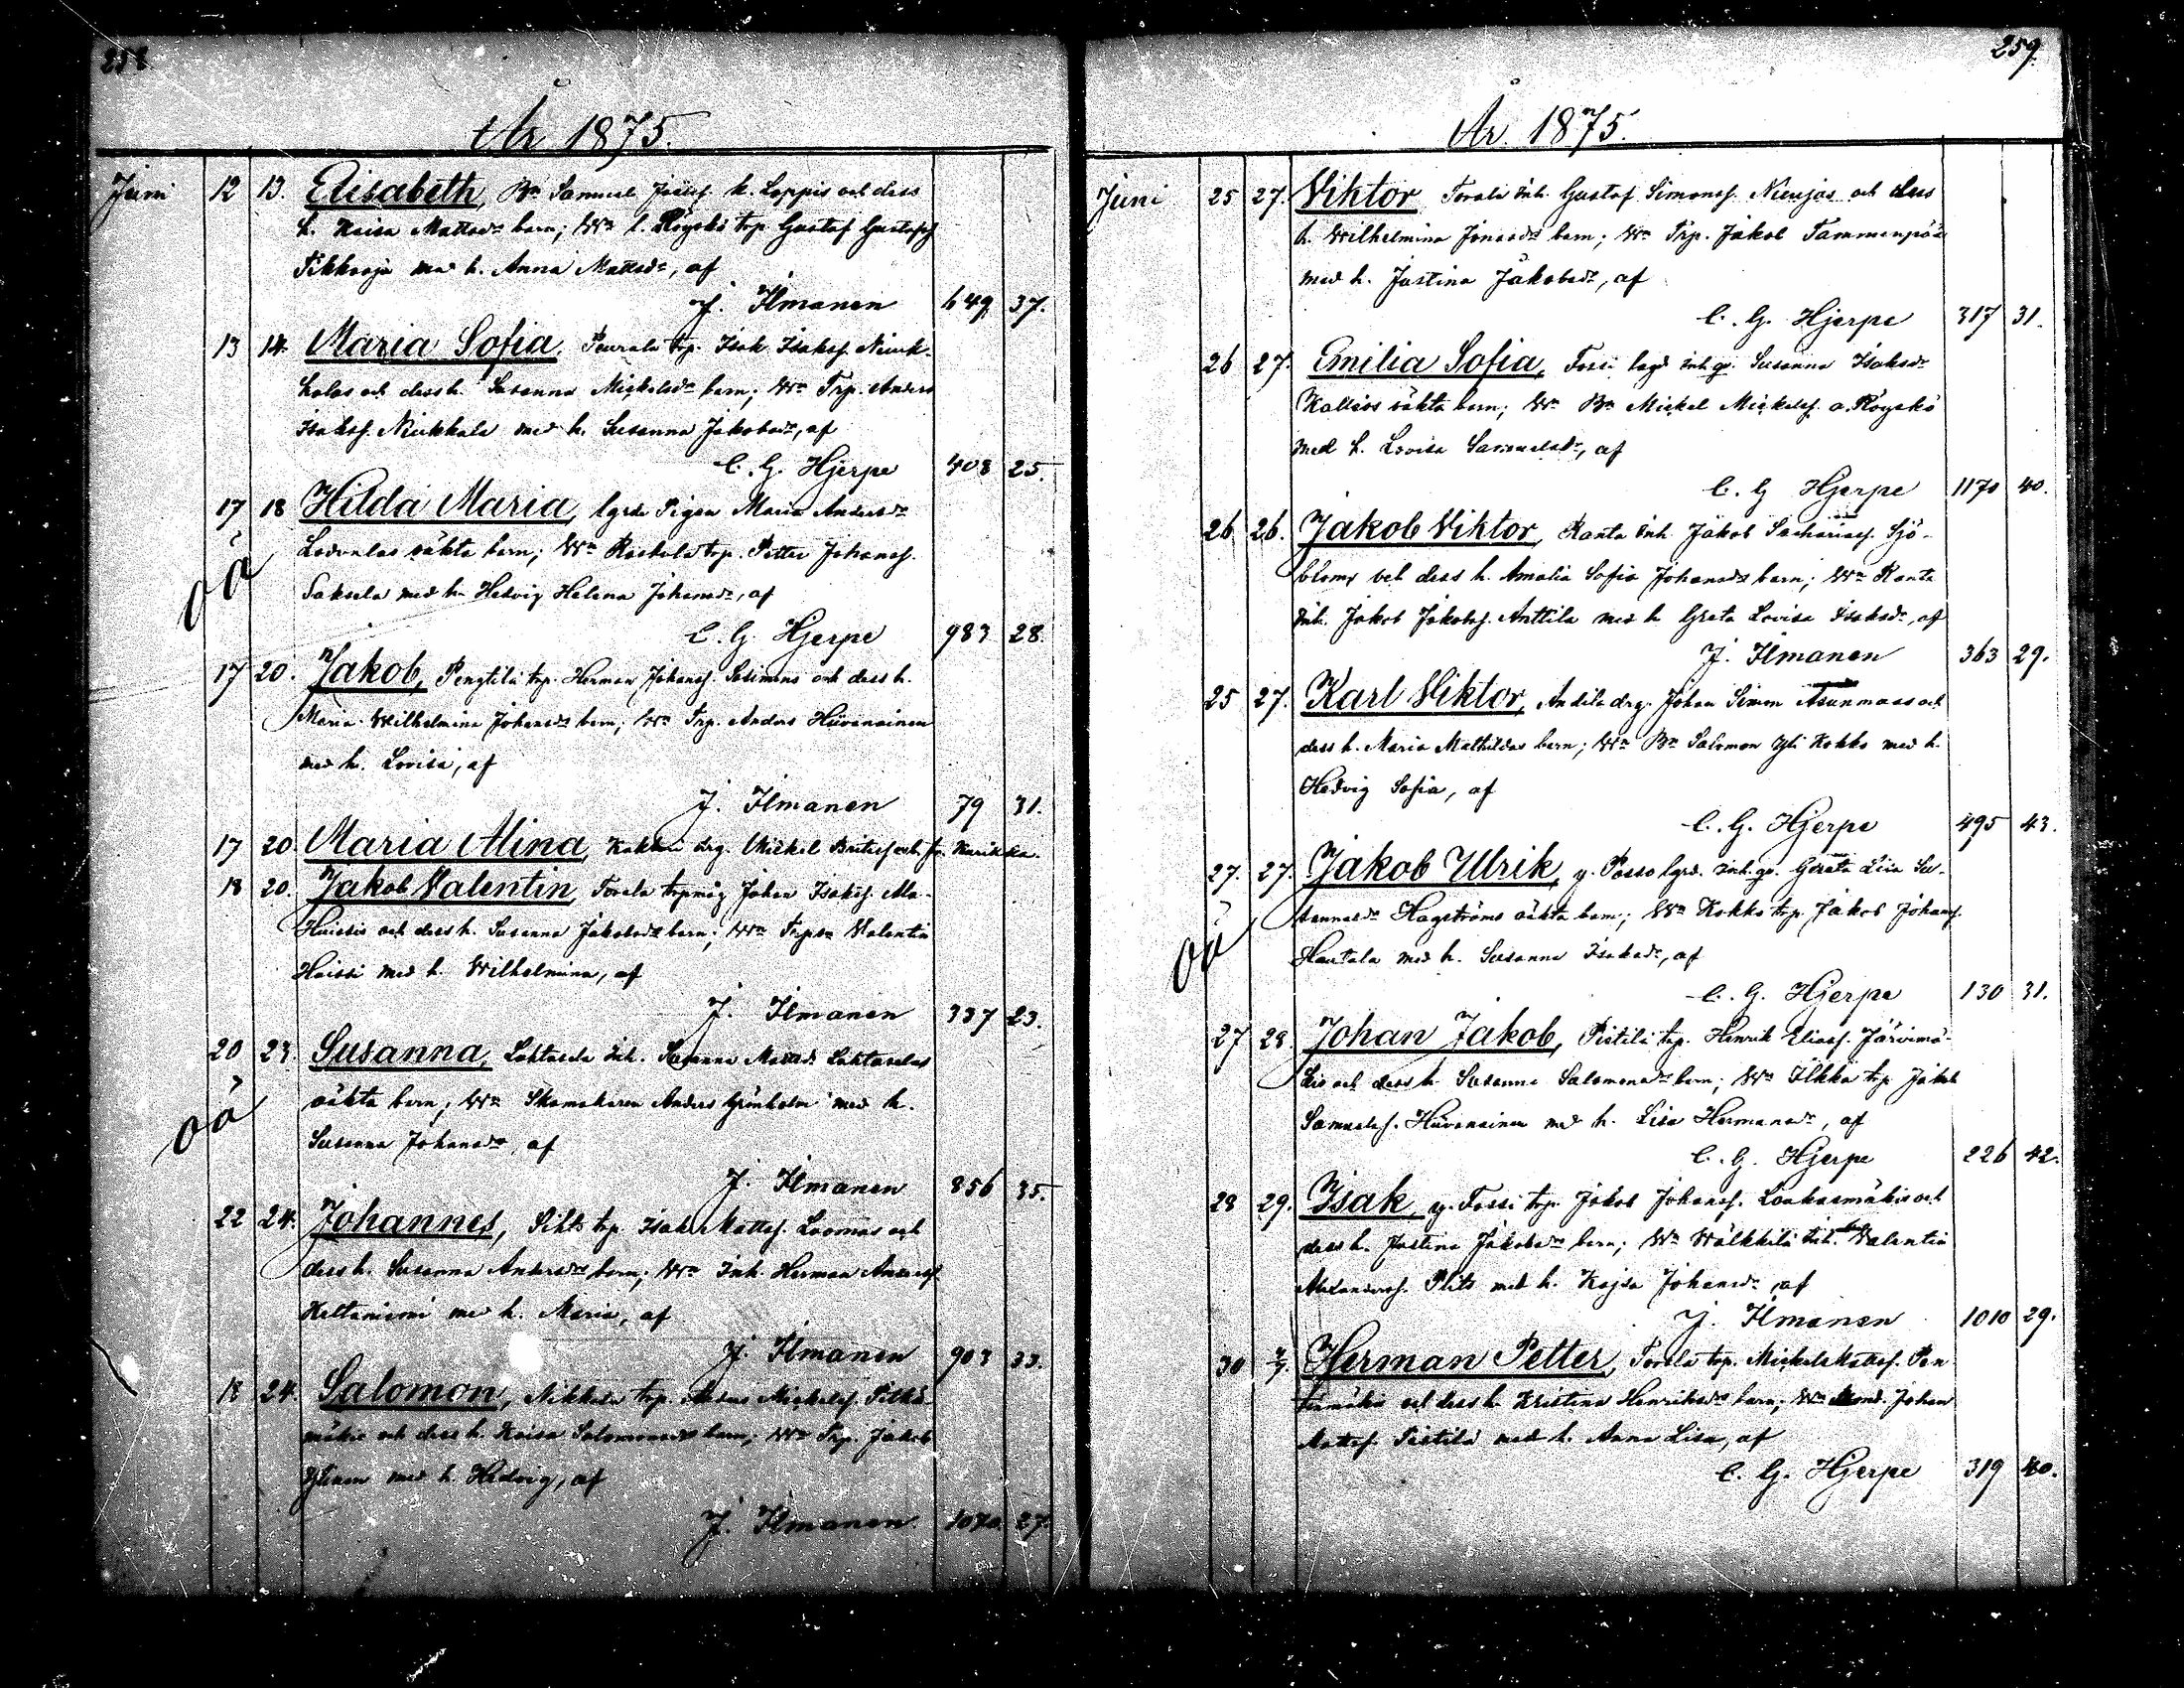 258
År 1875.
Juni 12 13. Elisabeth, Bn Samuel Josefs. k. Loppis och dess
h. Kaisa Mattsdr barn; Wn l. Röyskö trp. Gustaf Gustafsf
Pikkuoja med h. Anna Mattsdr, af
J. Ilmanen 649 37.
13 14. Maria Sofia, Peurala trp. Isak Isaksf. Niuk-
kalas och dess h. Susanna Mickelsdr barn; Wn Trp. Anders
Isaksf. Niukkala med h. Susanna Jakobsdr, af
C. G. Hjerpe 408 25.
17 18 Hilda Maria, lgrda Pigan Maria Andersdr
oäkta barn; Wn trp. Petter Johansf.
Saksela med h. Hedvig Helena Johansdr, af
oä
C. G. Hjerpe 983 28.
17 20. Jakob, Pengtilä trp. Herman Johansf. och dess h.
Maria Wilhelmina Johansdr barn; Wn Trp. Anders Hüvenainen
med h. Lovisa, af
J. Ilmanen 79 31.
17 20. Maria Alina, drg. Mickel och Karikka.
18 20. Jakob Valentin, Torala trpmåg Johan Isaksf. Ala-
Huissis och dess h. Susanna Jakobsdr barn; Wn Valentin
Huissi med h. Wilhelmina, af
J. Ilmanen 337 23.
20 23. Susanna, Inh. Susanna
oäkta barn; Wn Skomakaren Anders med h.
Susanna Johansdr, af
oä
J. Ilmanen 856 35.
22 24. Johannes, trp. Isak Mattsf. Luomas och
dess h. Susanna Andersdr barn; Wn Inh. Herman Andersf.
Keltaniemi med h. Maria, af
J. Ilmanen 903 33.
18 24. Salomon, Nikkola trp. Mickelsf. Pitkä-
mäkis och dess h. Kaisa Salomonsdr barn; Wn Trp. Jakob
med h. Hedvig, af
J. Ilmanen 1070 27
259.
År 1875.
Juni 25 27. Viktor Torala Inh. Gustaf Simonsf. och dess
h. Wilhelmina Jonasdr barn; Wn Trp. Jakob Tammenpää
med h. Justina Jakobsdr, af
C. G. Hjerpe 317 31.
26 27. Emilia Sofia, Fossi lagd inh. qv. Susanna Isaksdr
Kallios oäkta barn; Wn Bn Mickel Mickelsf. a. Röyskö
med h. Lovisa Samuelsdr, af
C. G Hjerpe 1170 40.
26 26. Jakob Viktor, Ranta Inh. Jakob Sachariasf. Sjö-
bloms och dess h. Amalia Sofia Johansdr barn; Wn Ranta
Inh. Jakob Jakobsf. Anttila med h. Greta Lovisa Isaksdr, af
J. Ilmanen 363 29.
25 27. Karl Viktor, Andila drg. Johan Simon Asunmaas och
dess h. Maria Mathildas barn; Wn Bn Salomon Yli Kokko med h.
Hedvig Sofia, af
C. G. Hjerpe 495 43.
27. 27. Jakob Ulrik, y. Passo lgrd. inh. qv. Greta Liisa Su-
sannasdr Hagströms oäkta barn; Wn Kokko trp. Jakob Johansf.
Hautala med h. Susanna Isaksdr, af
oä
C. G. Hjerpe 130 31.
27 28. Johan Jakob, Pistilä trp. Henrik Eliasf. Järvimä-
kis och dess h. Susanna Salomonsdr barn; Wn Ilkka trp. Jakob
Samuelsf. Hüvenainen med h. Lisa Hermansdr, af
C. G. Hjerpe 226 42.
28 29. Isak, y. Fossi trp. Jakob Johansf. Loukasmäkis och
dess h. Justina Jakobsdr barn; Wn Wälkkilä Inh. Valentin
Alexandersf. med h. Kajsa Johansdr, af
J. Ilmanen 1010 29.
30 Herman Petter, Torala trp. Mickel Mattsf. Pen-
tinmäkis och dess h. Kristina Henriksdr barn; Wn Johan
Mattsf. Pistilä med h. Anna Lisa, af
C. G. Hjerpe 319 40.